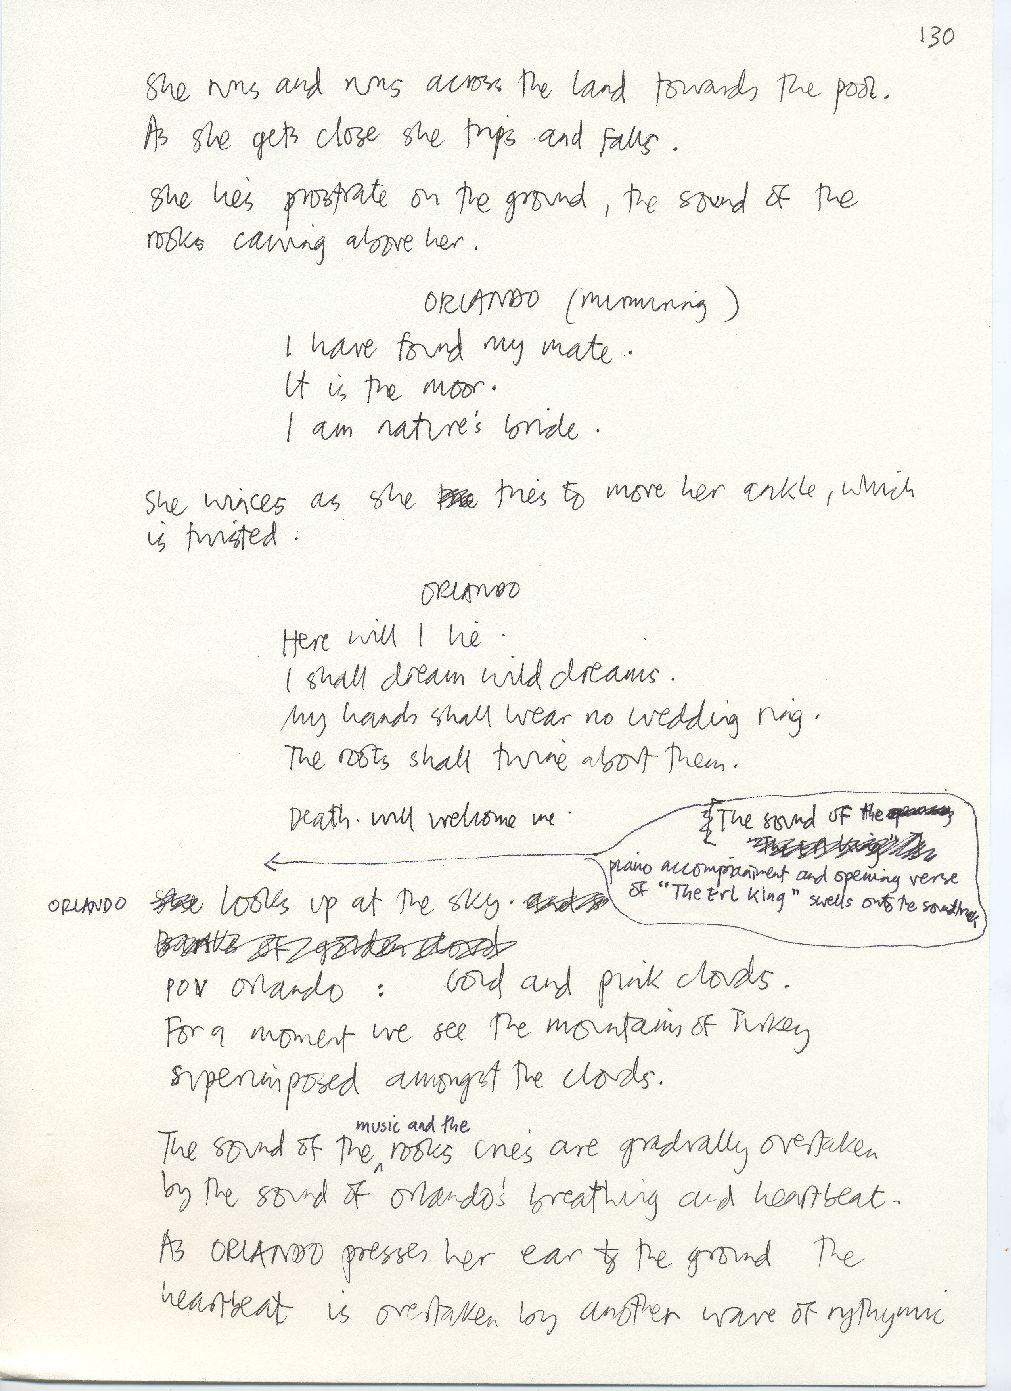 130
She runs and runs across the land towards the pool.
As she gets close she trips and falls.
She lies prostrate on the ground, the sound of the
rooks cawing above her.
ORLANDO (murmuring)
I have found my mate.
It is the moor.
I am nature's bride.
She winces as she tries to move her ankle, which
is twisted.
ORLANDO
Here will I lie.
I shall dream wild dreams.
My hands shall wear no wedding ring.
The roots shall twine about them.
Death will welcome me.
The sound of the
piano accompaniment and opening verse
of "The Erl King" swells onto the soundtrack
ORLANDO looks up at the sky.
POV Orlando : Gold and pink clouds.
For a moment we see the mountains of Turkey
superimposed amongst the clouds.
music and the
The sound of the rooks cries are gradually overtaken
by the sound of Orlando's breathing and heartbeat.
As ORLANDO presses her ear to the ground the
heartbeat is overtaken by another wave of rythymic